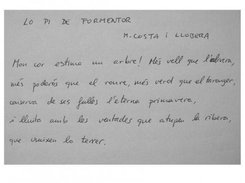 LO PI DE FORMENTOR
M. COSTA I LLOBERA
Mon cor estima un arbre! Més vell que l'olivera,
més poderós que el roure, més verd que el taronger,
conserva de ses fulles l'eterna primavera,
i lluita amb les ventades que atupen la ribera,
que cruixen lo terrer.